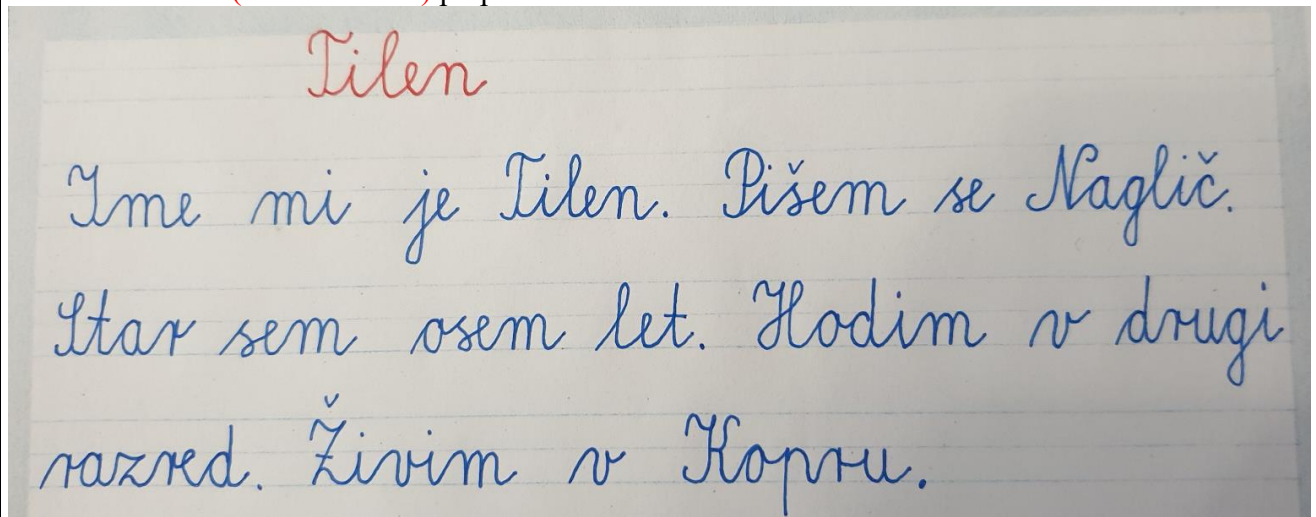 Tilen
Ime mi je Tilen. Pišem se Naglič.
Star sem osem let. Hodim v drugi
razred. Živim v Kopru.